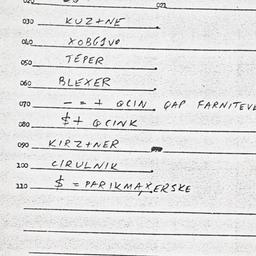 030 KUZ+NE
040 XOBGIVO
050 TEPER
060 BLEXER
070 — = + QCIN. QAP FARNITEVE
080 $+ QCINK
090 KIRZ+NER
100 CIRULNIK
110 $ = PARIKMAXERSKE